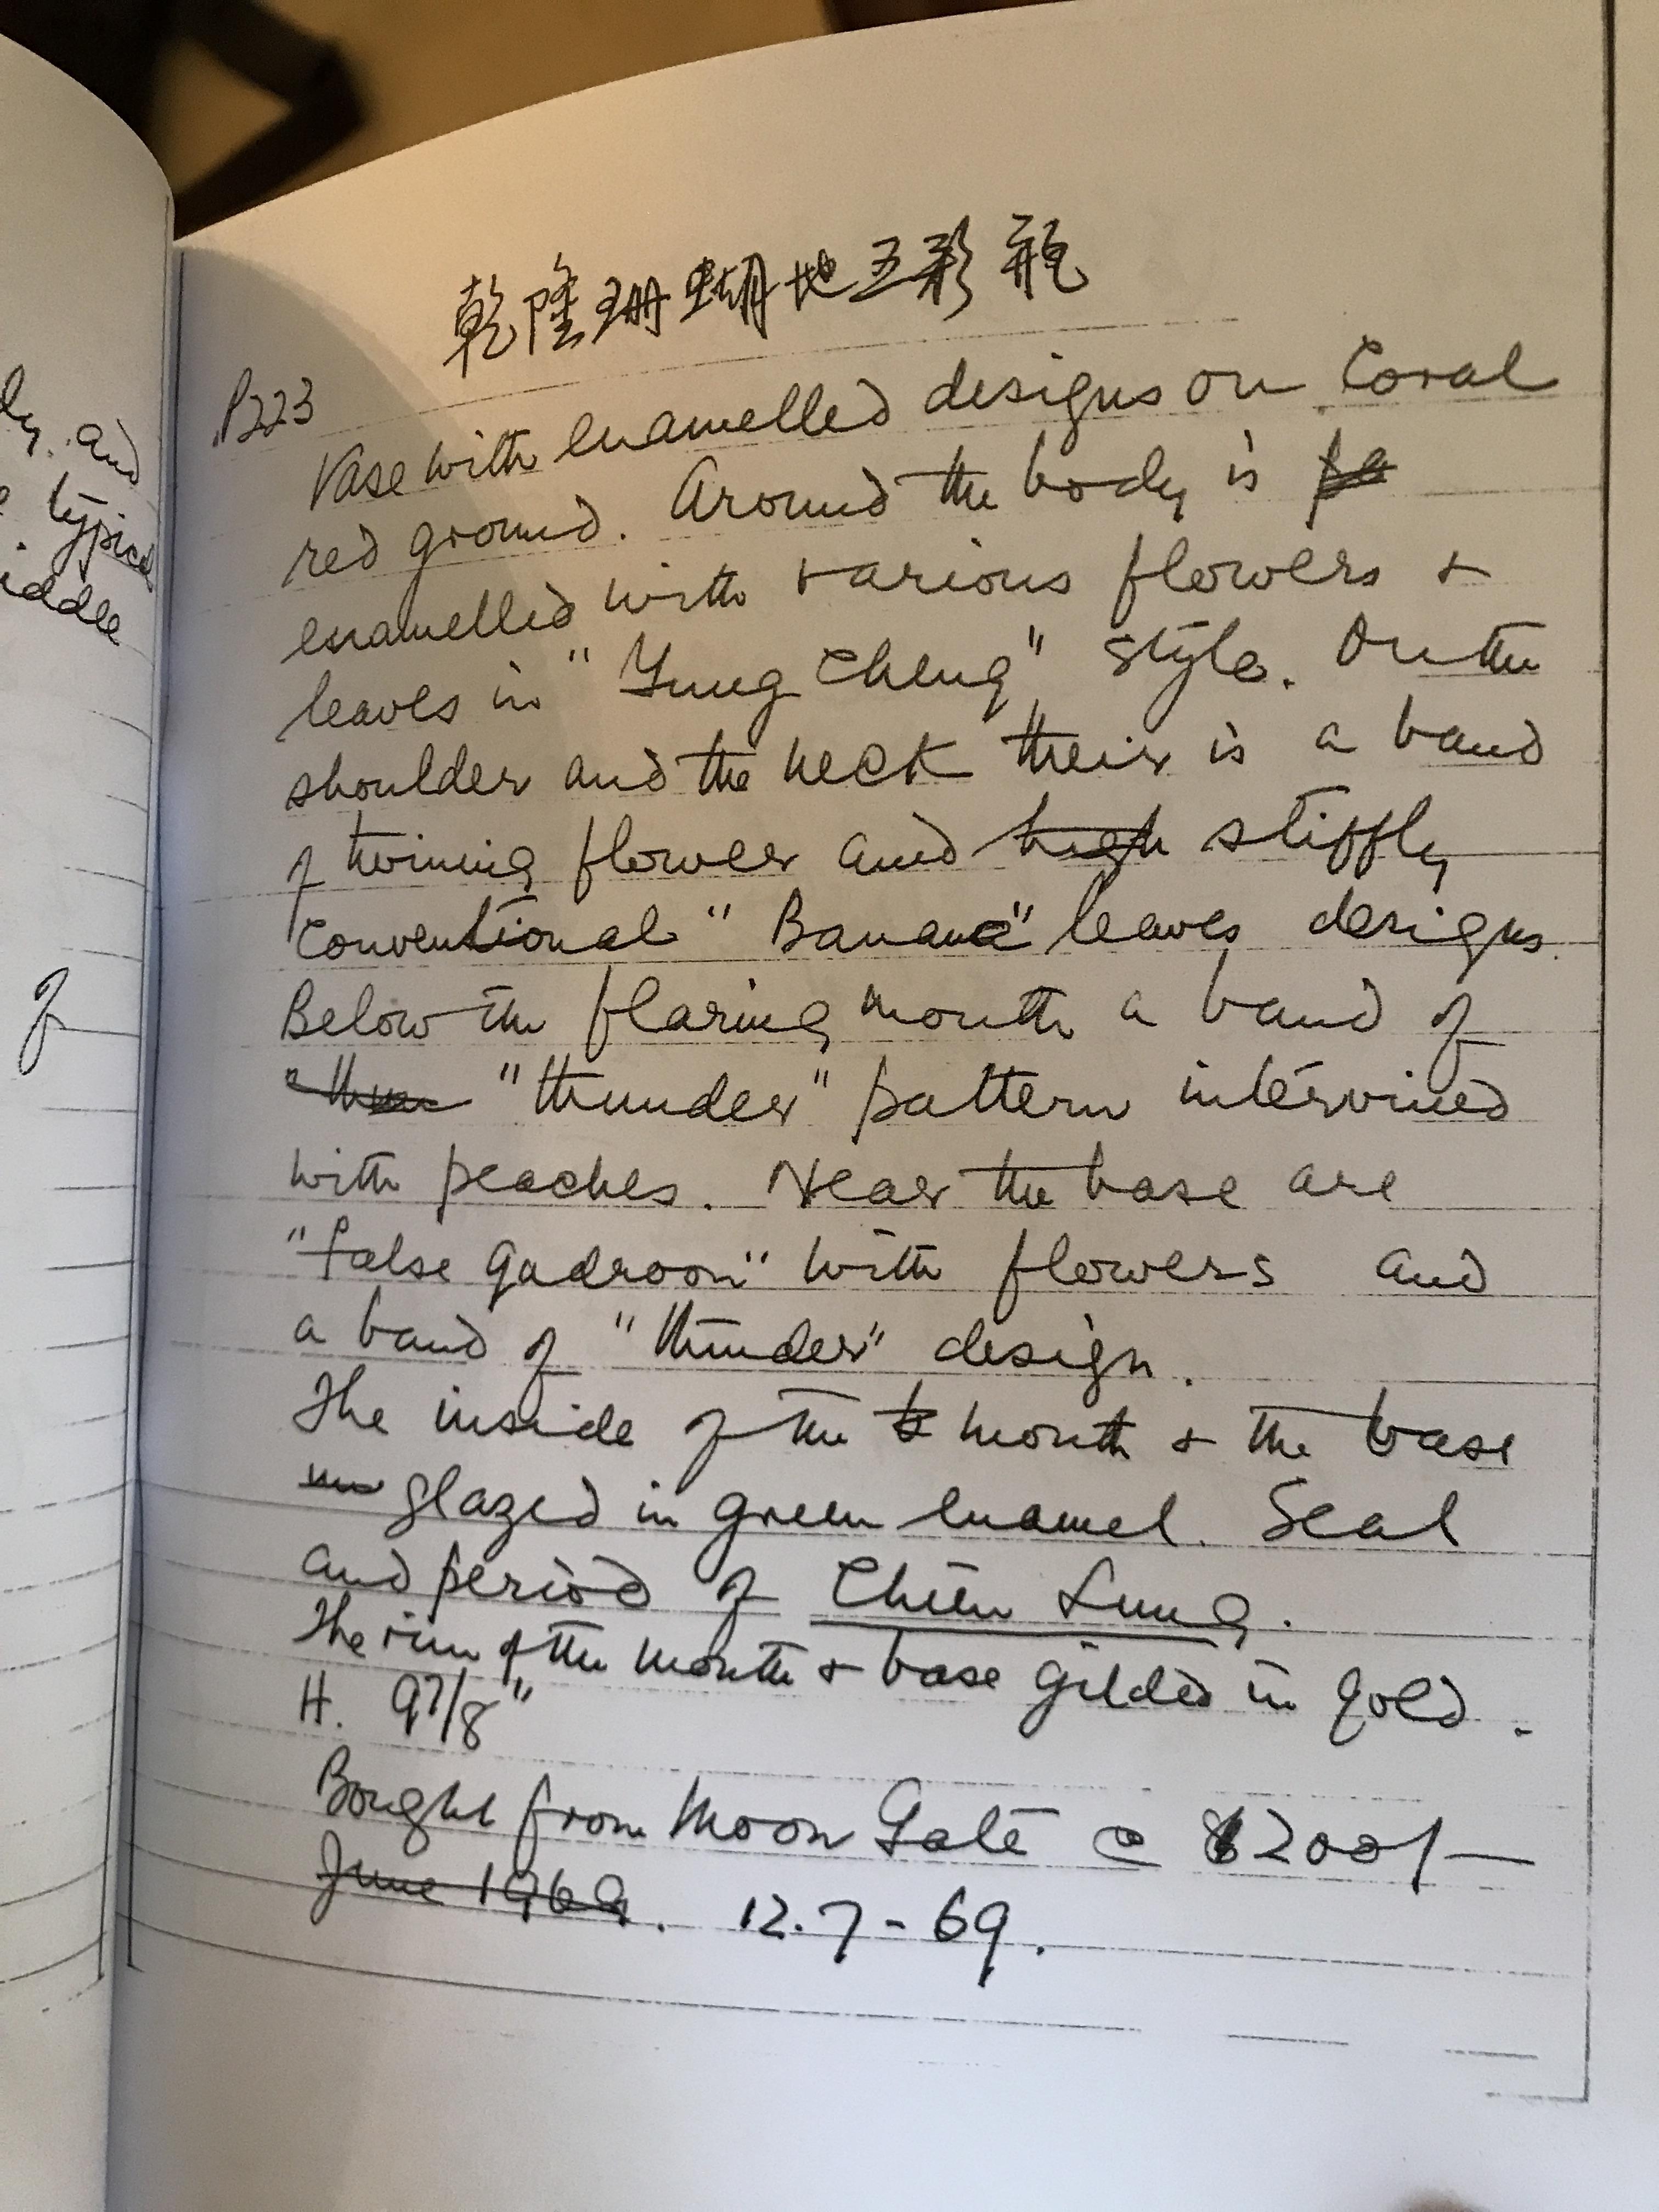 dy. and
typical
iddle
of
乾隆珊瑚地五彩瓶
P223
Vase with enamelled designs on Coral
red ground. Around the body is
enamelled with various flowers &
leaves in "Yung Cheng" style. On the
shoulder and the neck their is a band
of twining flower and high stiffly
conventional "Banana" leaves designs.
Below the flaring mouth a band of
"thunder" pattern intervined
with peaches. Near the base are
"false gadroon" with flowers and
a band of "thunder" design.
The inside of the mouth & the base
glazed in green enamel. Seal
and period of Chien Lung.
The rim of the mouth & base gilded in gold.
H. 9 7/8"
Bought from Moon Gate @ $200/-
June 1969. 12.7-69.